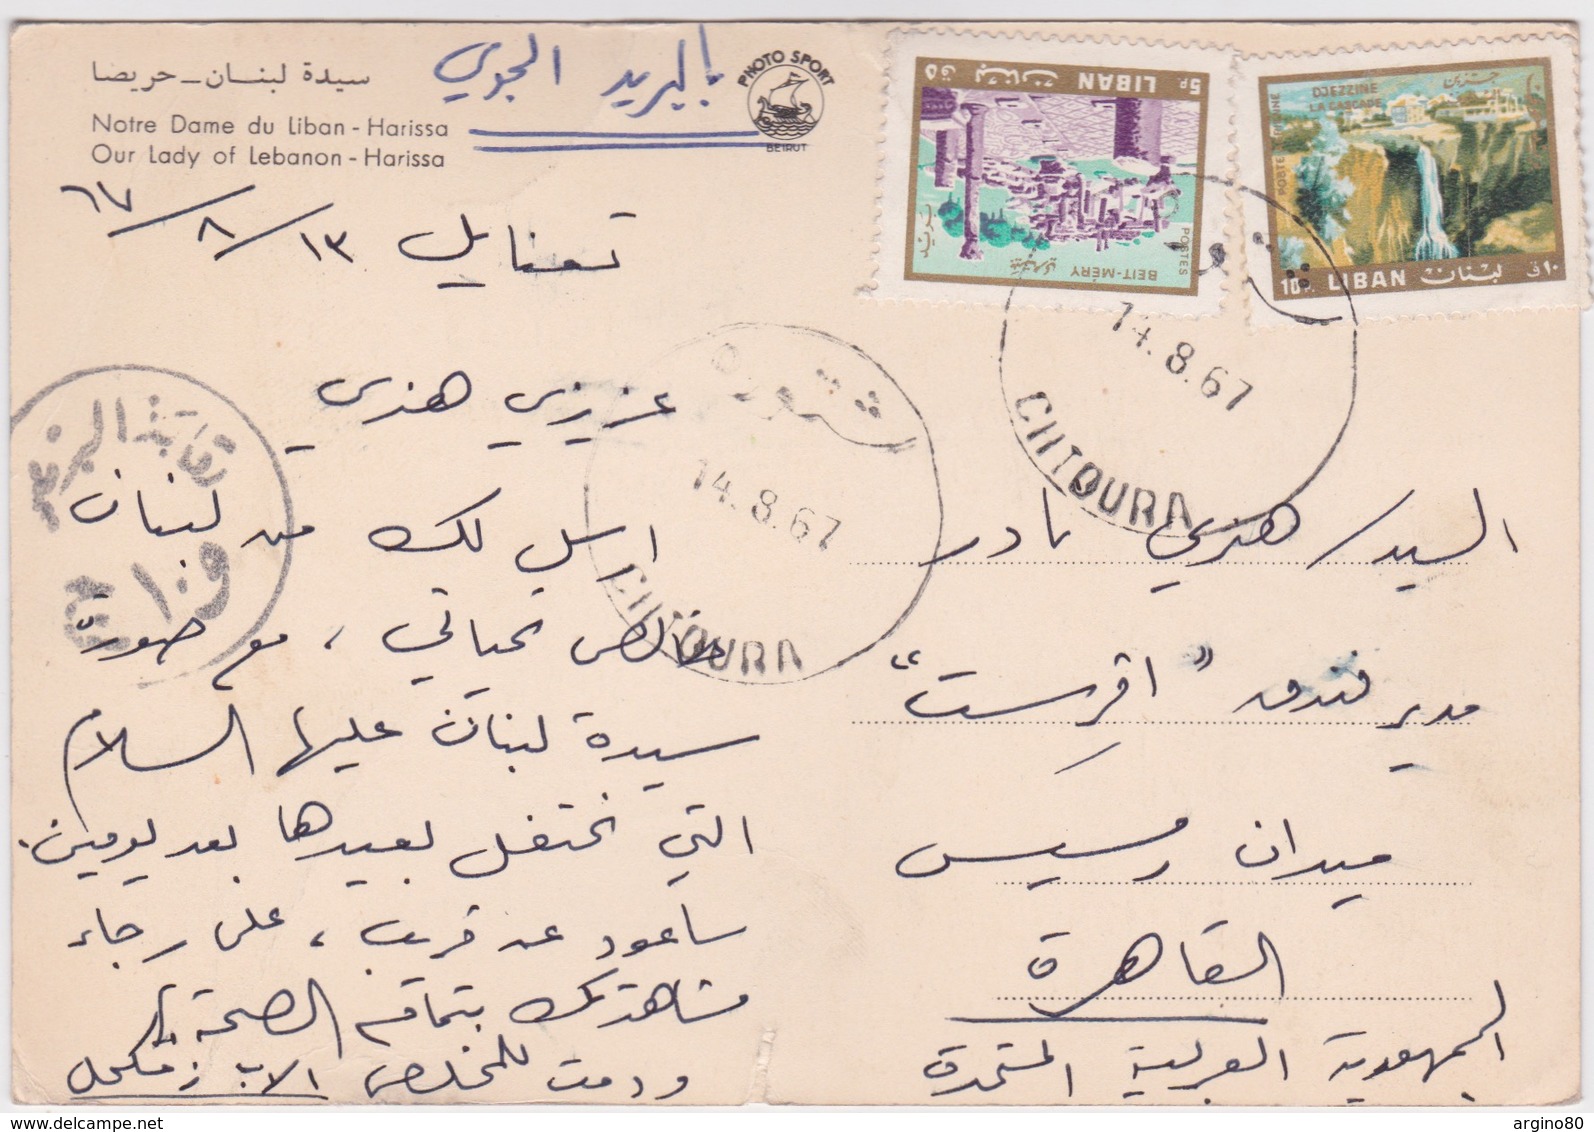 سيدة لبنان - حريصا
Notre Dame du Liban - Harissa
Our Lady of Lebanon - Harissa
بالبريد الجوي
PHOTO SPORT
BEIRUT
LIBAN لبنان
5P. ٥ق
POSTES
BEIT-MÉRY
جزين
DJEZZINE
LA CASCADE
10P. LIBAN لبنان ١٠ق
تعنايل ١٣/٨/٦٧
عزيزي هنري
ارسل لك من لبنان
خالص تحياتي ، مع صورة
سيدة لبنان عليها السلام
التي نحتفل بعيدها بعد يومين.
ساعود عن قريب ، على رجاء
مشاهدتك بتمام الصحة
ودمت للمخلص الاب
شتورة
14.8.67
CHTOURA
شتورة
14.8.67
CHTOURA
السيد/ هنري نادر
مدير فندق "اڤرست"
ميدان رمسيس
القاهرة
الجمهورية العربية المتحدة
argino80